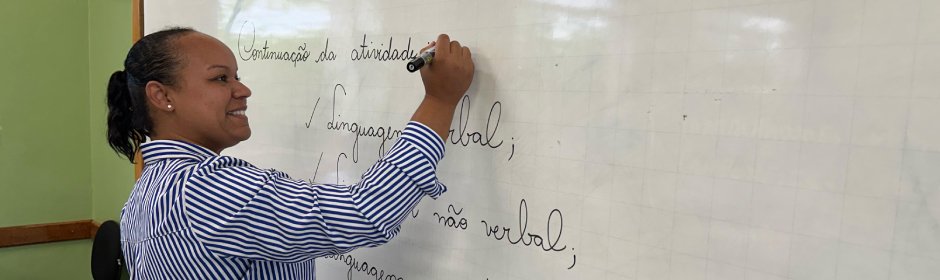 Continuação da atividade
✓ Linguagem verbal;
✓ não verbal;
Linguagem